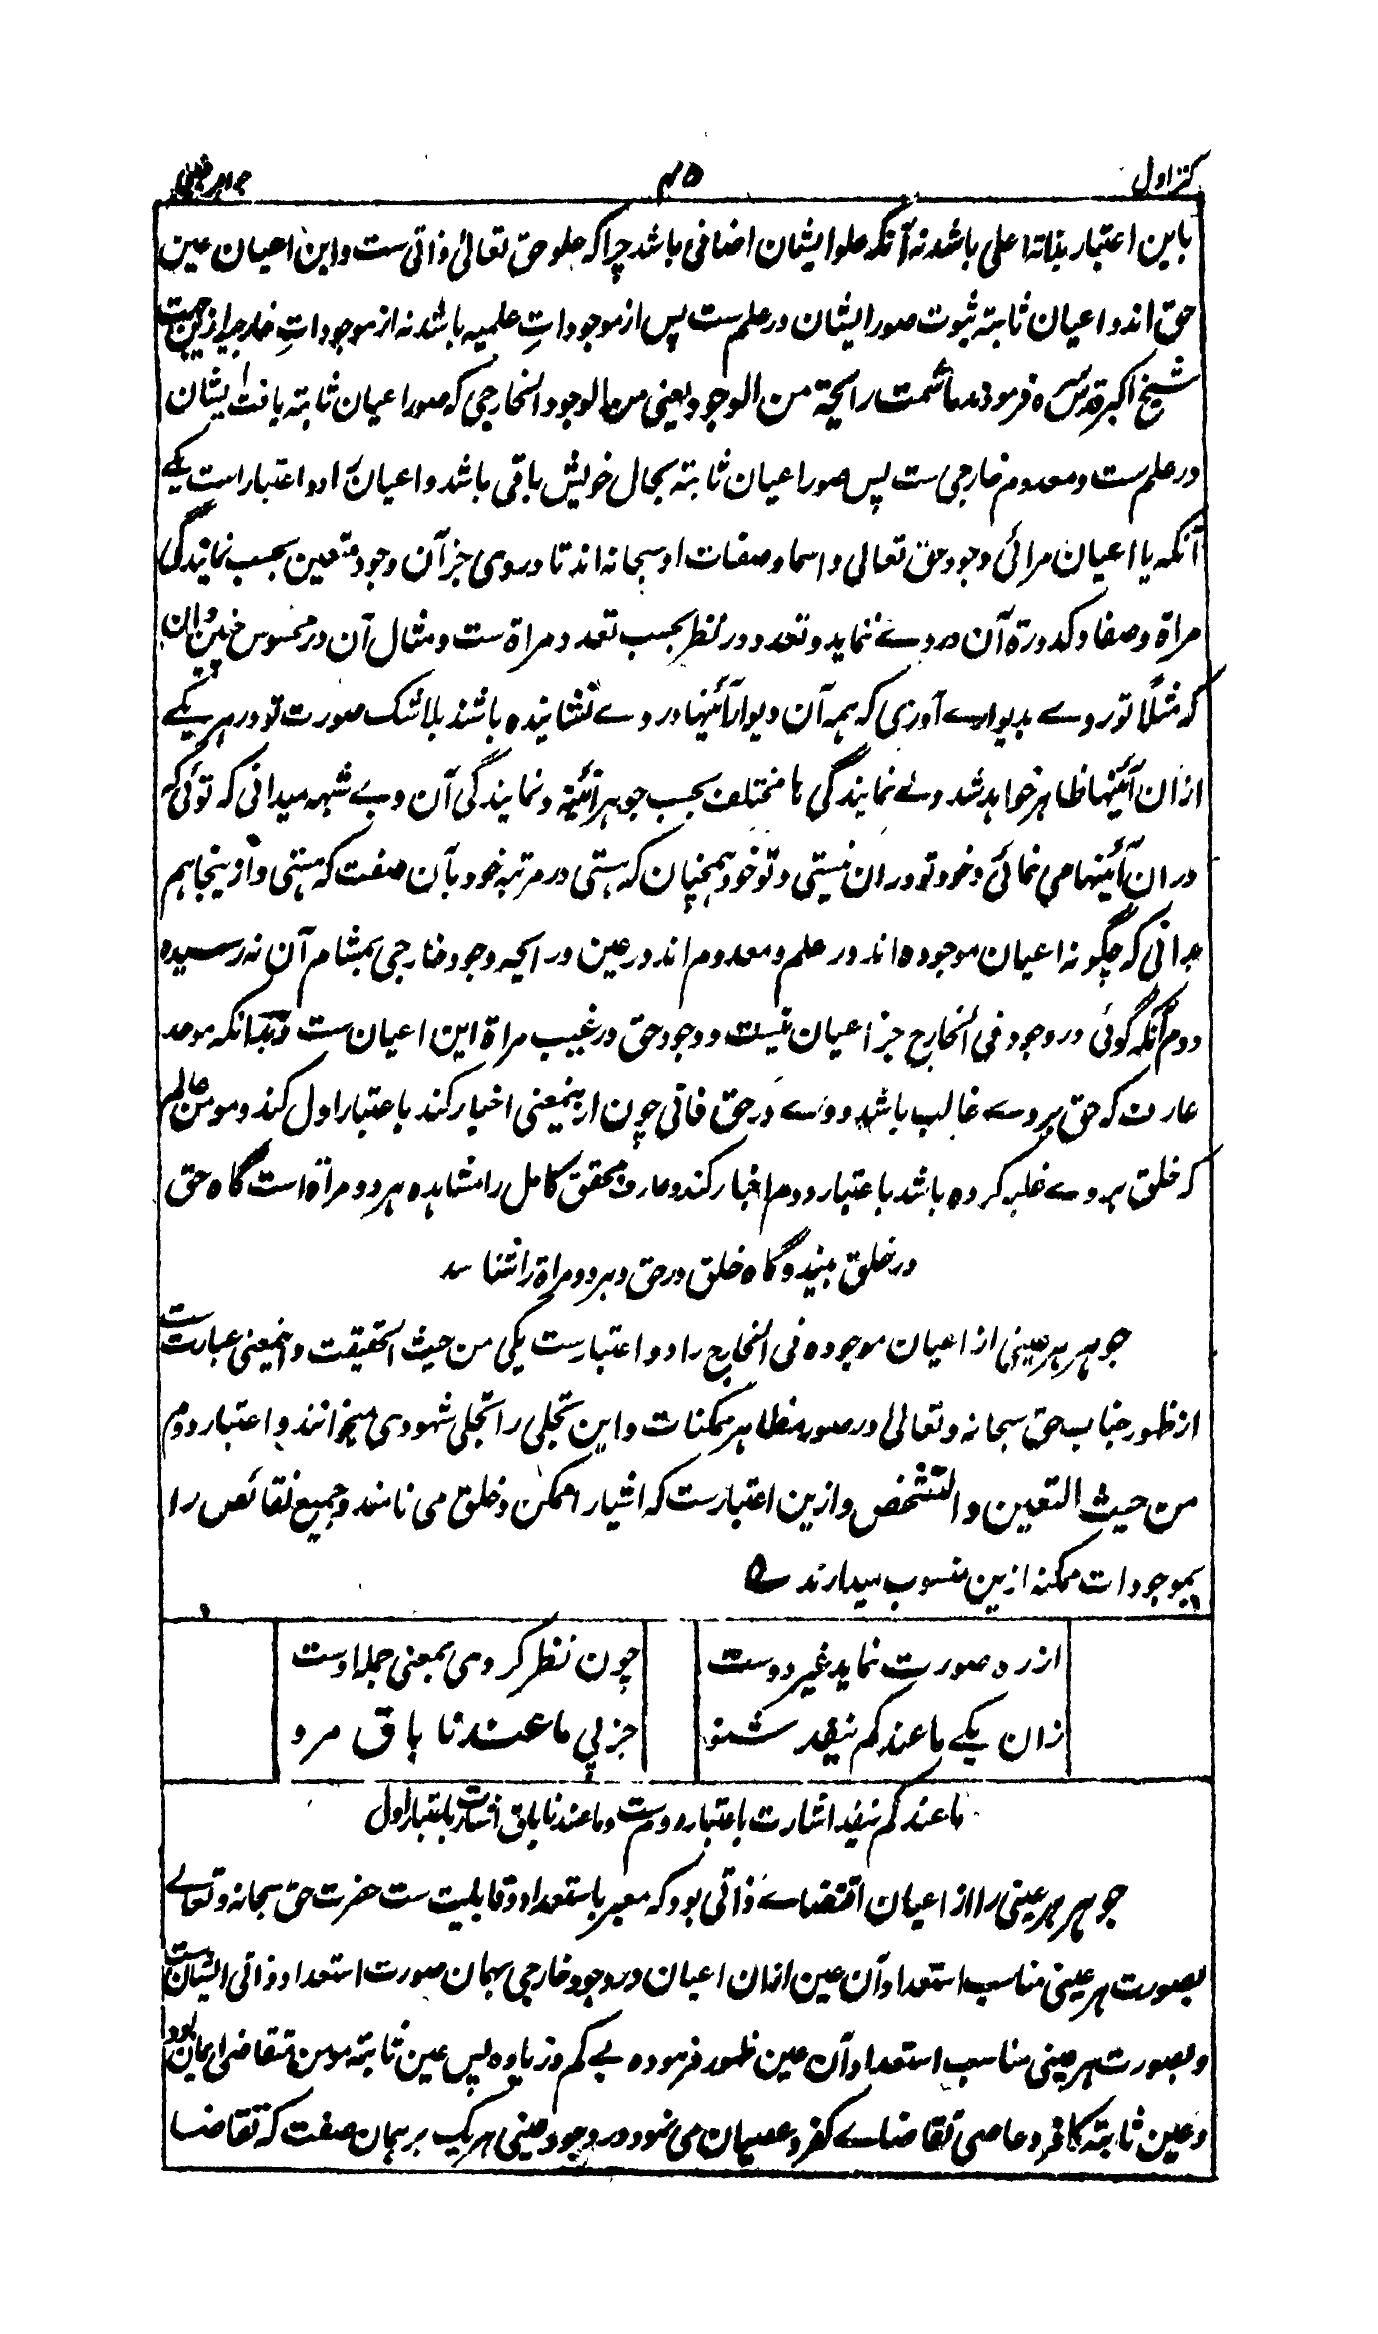 کنز اول
۴۵
جواهر غیبی
باین اعتبار بذاته اعلی باشد نه آنکه علو ایشان اضافی باشد چرا که علو حق تعالی ذاتی ست و این اعیان عین
حق اند و اعیان ثابته ثبوت صور ایشان در علم ست پس از موجوداتِ علمیه باشد نه از موجوداتِ خارجیه ازین جهت
شیخ اکبر قدس سره فرموده ما شمت رائحة من الوجود یعنی من الوجود الخارجی که صور اعیان ثابته یافت ایشان
در علم ست و معدوم خارجی ست پس صور اعیان ثابته بحال خویش باقی باشد و اعیان را دو اعتبار است یکے
آنکه یا اعیان مرائی وجود حق تعالی و اسما و صفات او سبحانه اند تا در وی جز آن وجود متعین بحسب نمایندگی
مراة و صفا و کدورة آن در وے ننماید و تعدد در نظر بحسب تعدد مراة ست و مثال آن در محسوس همین دان
که مثلاً تو روے بدیوارے آوری که همه آن دیوار آئینها در وے نشانیده باشند بلا شک صورت تو در هر یکے
ازان آئینها ظاهر خواهد شد ولے نمایندگی ها مختلف بحسب جوهر آئینه و نمایندگی آن و بے شبهه میدانی که توئی که
دران آئینها می نمائی و خود تو دران نیستی و تو خود همچنان که هستی در مرتبه خود بآن صفت که هستی و ازینجا هم
بدانی که چگونه اعیان موجوده اند در علم و معدوم اند در عین و رایحه وجود خارجی بمشام آن نه رسیده
دوم آنکه گوئی در وجود فی الخارج جز اعیان نیست و وجود حق در غیب مراة این اعیان ست و بدانکه موحد
عارف که حق بر وے غالب باشد و وے در حق فانی چون ازینمعنی اخبار کند باعتبار اول کند و مومن عالم
که خلق بر وے غلبه کرده باشد باعتبار دوم اخبار کند و عارف محقق کامل را مشاهده هر دو مراة است گاه حق
در خلق بیند و گاه خلق در حق و هر دو مراة را شناسد
جوهر هر عینی از اعیان موجوده فی الخارج را دو اعتبارست یکی من حیث الحقیقت و اینمعنی عبارت ست
از ظهور جناب حق سبحانه و تعالی در صور مظاهر ممکنات و این تجلی را تجلی شهودی میخوانند و اعتبار دوم
من حیث التعین و التشخص و ازین اعتبارست که اشیا را ممکن و خلق می نامند و جمیع نقائص را
بموجودات ممکنه ازین منسوب میدارند ے
از ره صورت نماید غیر دوست
چون نظر کردی بمعنی جمله اوست
زان یکے ما عندکم ینفد شنو
جز پی ما عندنا باق مرو
ما عندکم ینفد اشارت باعتبار دوم ست و ما عندنا باق اشارت ست باعتبار اول
جوهر هر عینی را از اعیان اقتضاے ذاتی بود که معبر باستعداد و قابلیت ست حضرت حق سبحانه و تعالے
بصورت هر عینی مناسب استعداد آن عین ازان اعیان در وجود خارجی بهمان صورت استعداد ذاتی ایشان ست
و بصورت هر عینی مناسب استعداد آن عین ظهور فرموده بے کم و زیاده پس عین ثابته مومن متقاضی ایمان بود
و عین ثابته کافر و عاصی تقاضاے کفر و عصیان می نمود در وجود عینی هر یک بر همان صفت که تقاضا